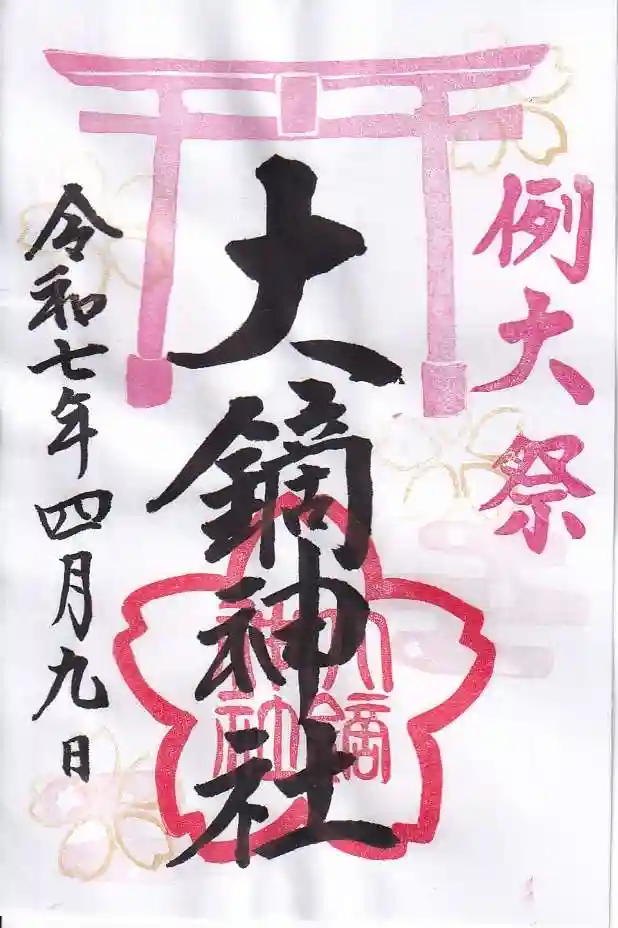 例大祭
大鏑神社
大鏑神社
令和七年四月九日